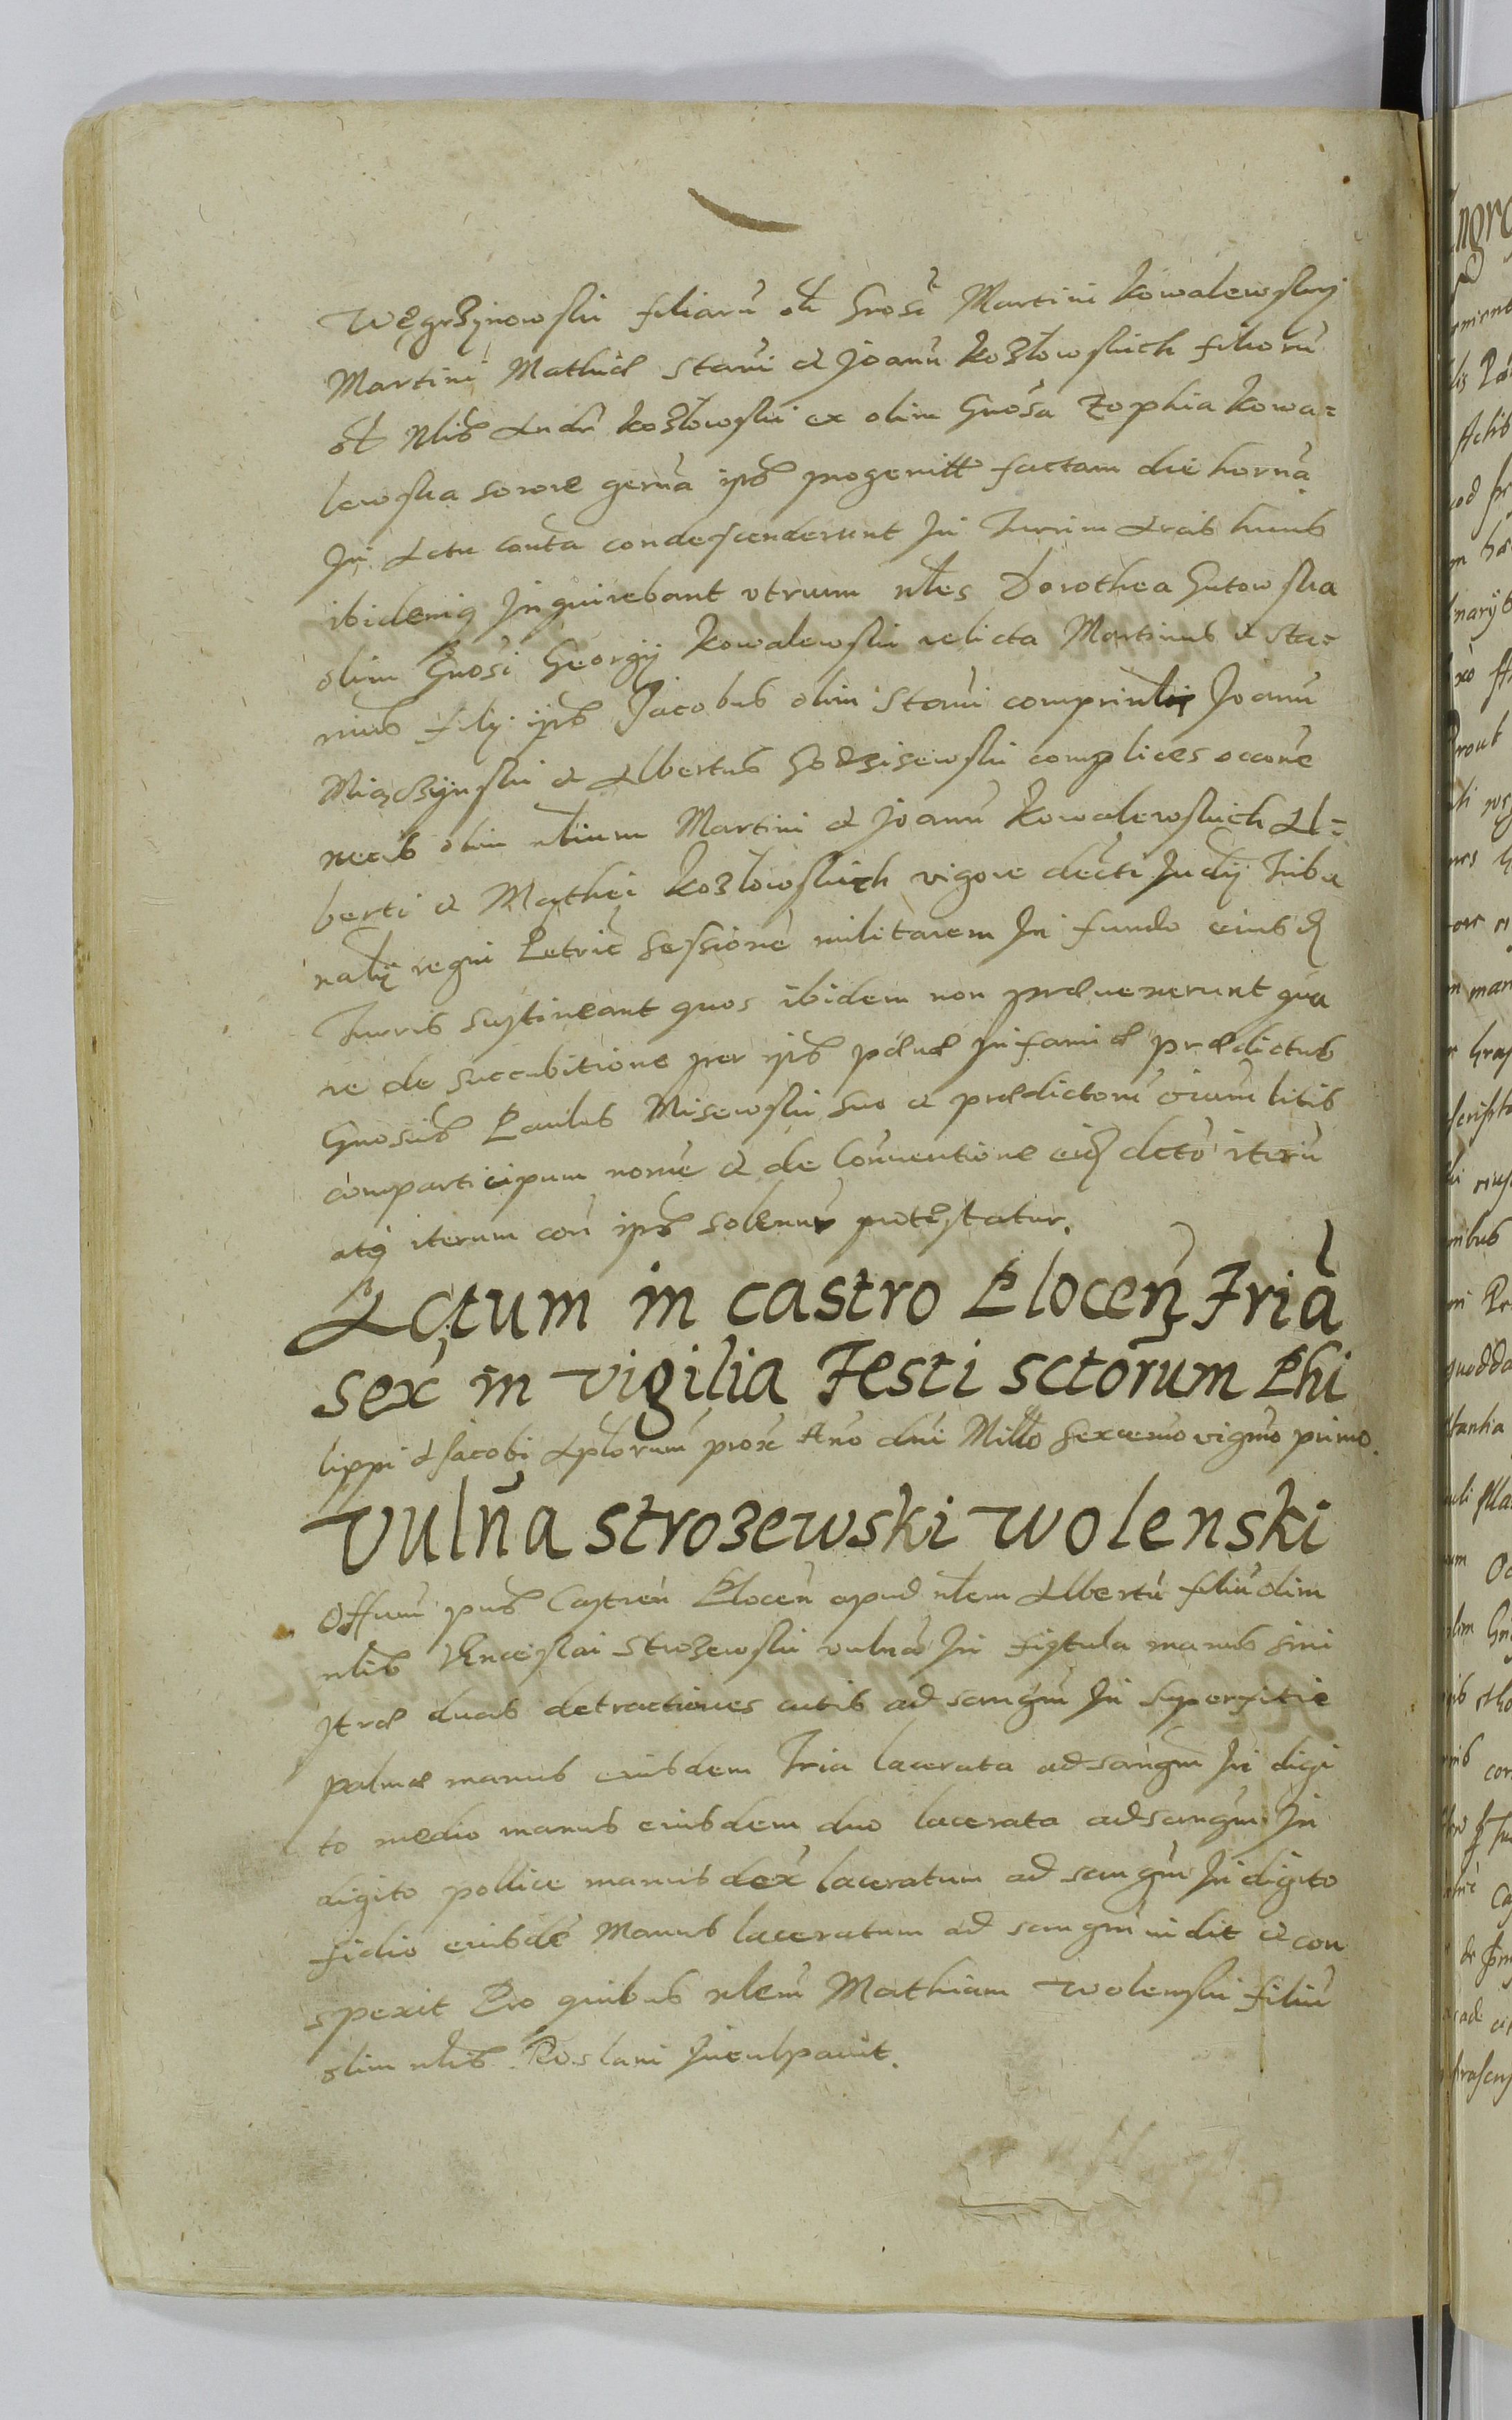 Węgrzynowski filiarū olī Grosi Martini Kowalewskij
Martini Mathiæ Stani & Joanū Kozłowskich filiorū
olī Nlis Andr Kozłowski ex olim Gnosa Zophia Kowa=
lewska sorore germa ipsꝫ progenitt factam die horna
In Actu contta condescenderunt In Turrim Arcis huius
ibidemq Inquirebant vtrum nles Dorothea Gutowska
olim Gnosi Georgij Kowalewski relicta Martinus & Sta=
nius filij ipsꝫ Jacobus olim Stani Joanū
Miączynski & Albertus complices occone
necis olim nlium Martini & Joanū Kowalewskich Al=
berti & Mathei Kozłowskich vigore decti Judij Tribu
nalij regni Petric sessionē militarem In fundo eiusd
Turris sustineant quos ibidem non præuenerunt qua
re de succubitione per ipsꝫ pænæ infamiæ prædictus
Gnosus Paulus Misewski suo & prædictorū oium litis
comparticipum nomē & de Conuentione eisd dcto iterū
atq iterum con ipsꝫ solenūr protestatur.
Actum in castro Plocen Fria
sex in vigilia Festi sctorum Phi
lippi & Jacobi Aplorum prox Ano dni Millo sexcemo vigmo primo.
Vulña Strozewski Wolenski
Offium pns Castren Plocen apud nlem Albertū filiū olim
nlis Strozewski vulnus In fistula manus sini
stræ duas detractiones cutis ad sangm In superfitie
palmæ manus eiusdem Tria lacerata ad sangm In digi
to medio manus eiusdem duo lacerata ad sangm In
digito pollice manus dex laceratum ad sangm In digito
fidio eiusdē Manus laceratum ad sangm uidit & con
spexit Pro quibus nlem Mathiam Wolenski filiū
olim nlis Roslani Inculpauit.